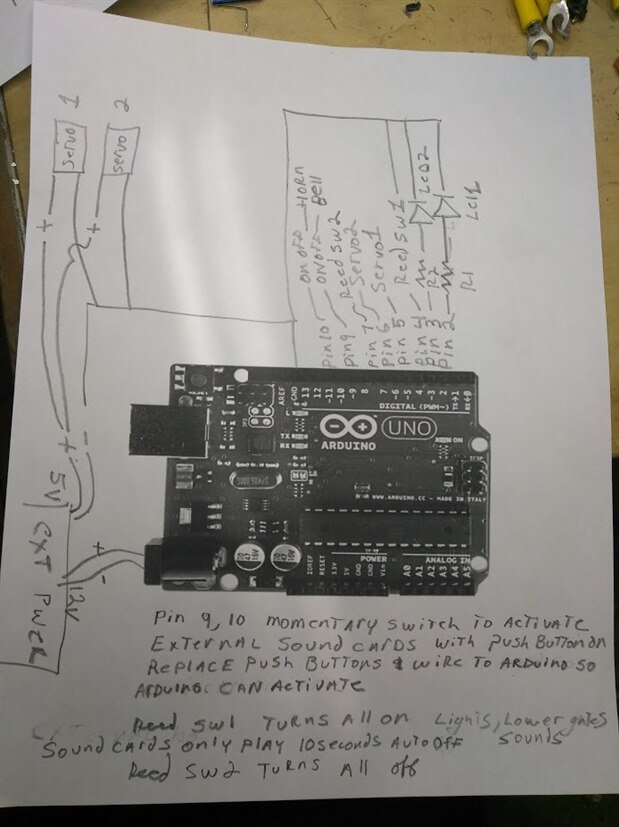 1
2
Servo
Servo
+
+
on off HORN
on off Bell
Pin 10
Pin 9 Reed SW2
Pin 7 Servo2
Pin 6 Servo1
Pin 5 Reed SW1
Pin 4 LED2
Pin 3 R2
Pin 2
R1
AREF
GND
13
12
~11
~10
~9
8
7
~6
~5
4
~3
2
TX→1
RX←0
DIGITAL (PWM~)
L
TX
RX
ARDUINO
UNO
ON
ICSP
WWW.ARDUINO.CC - MADE IN ITALY
47
16V
47
16V
IOREF
RESET
3.3V
5V
GND
GND
Vin
POWER
ANALOG IN
A0
A1
A2
A3
A4
A5
+ -
5V
EXT PWER
+
-
12V
Pin 9, 10 momentary switch to ACTIVATE
EXTERNAL SOUND CARDS with Push Button on
REPLACE PUSH BUTTONS & WIRE TO ARDUINO SO
ARDUINO CAN ACTIVATE
Reed SW1 TURNS All on Lights, Lower gates
Sound cards only PLAY 10 seconds Auto OFF Sounds
Reed SW2 TURNS All off